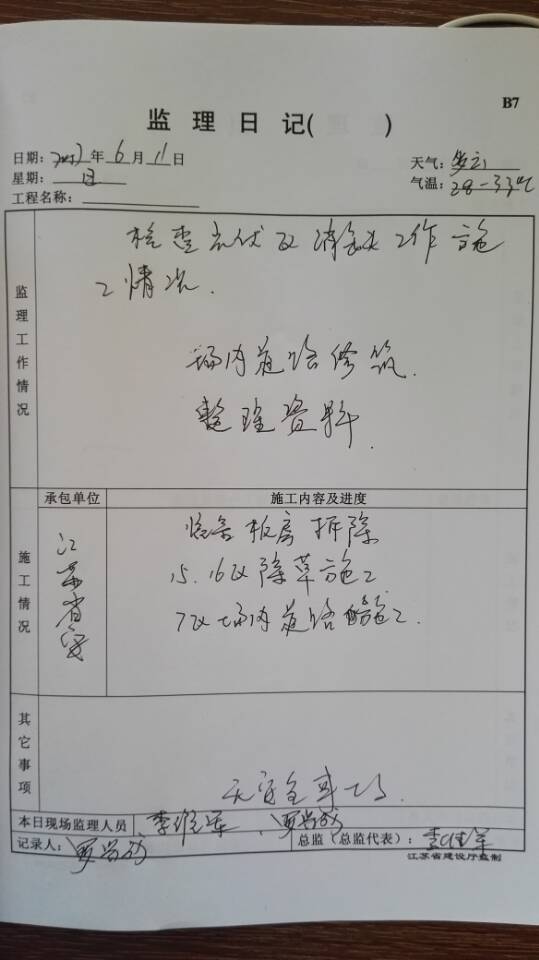 B7
监理日记( )
日期: 年 6 月 11 日
天气: 多云
星期: 日
气温: 28-33℃
工程名称:
监理工作情况
检查光伏区消缺工作施
工情况.
场内道路修筑.
整理资料.
承包单位
施工内容及进度
施工情况
江苏省
板房拆除
15.16区除草施工
7区场内道路施工.
其它事项
无安全事故.
本日现场监理人员
记录人:
总监（总监代表）:
江苏省建设厅监制